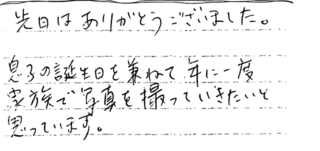 先日はありがとうございました。
息子の誕生日を兼ねて年に一度
家族で写真を撮っていきたいと
思っています。